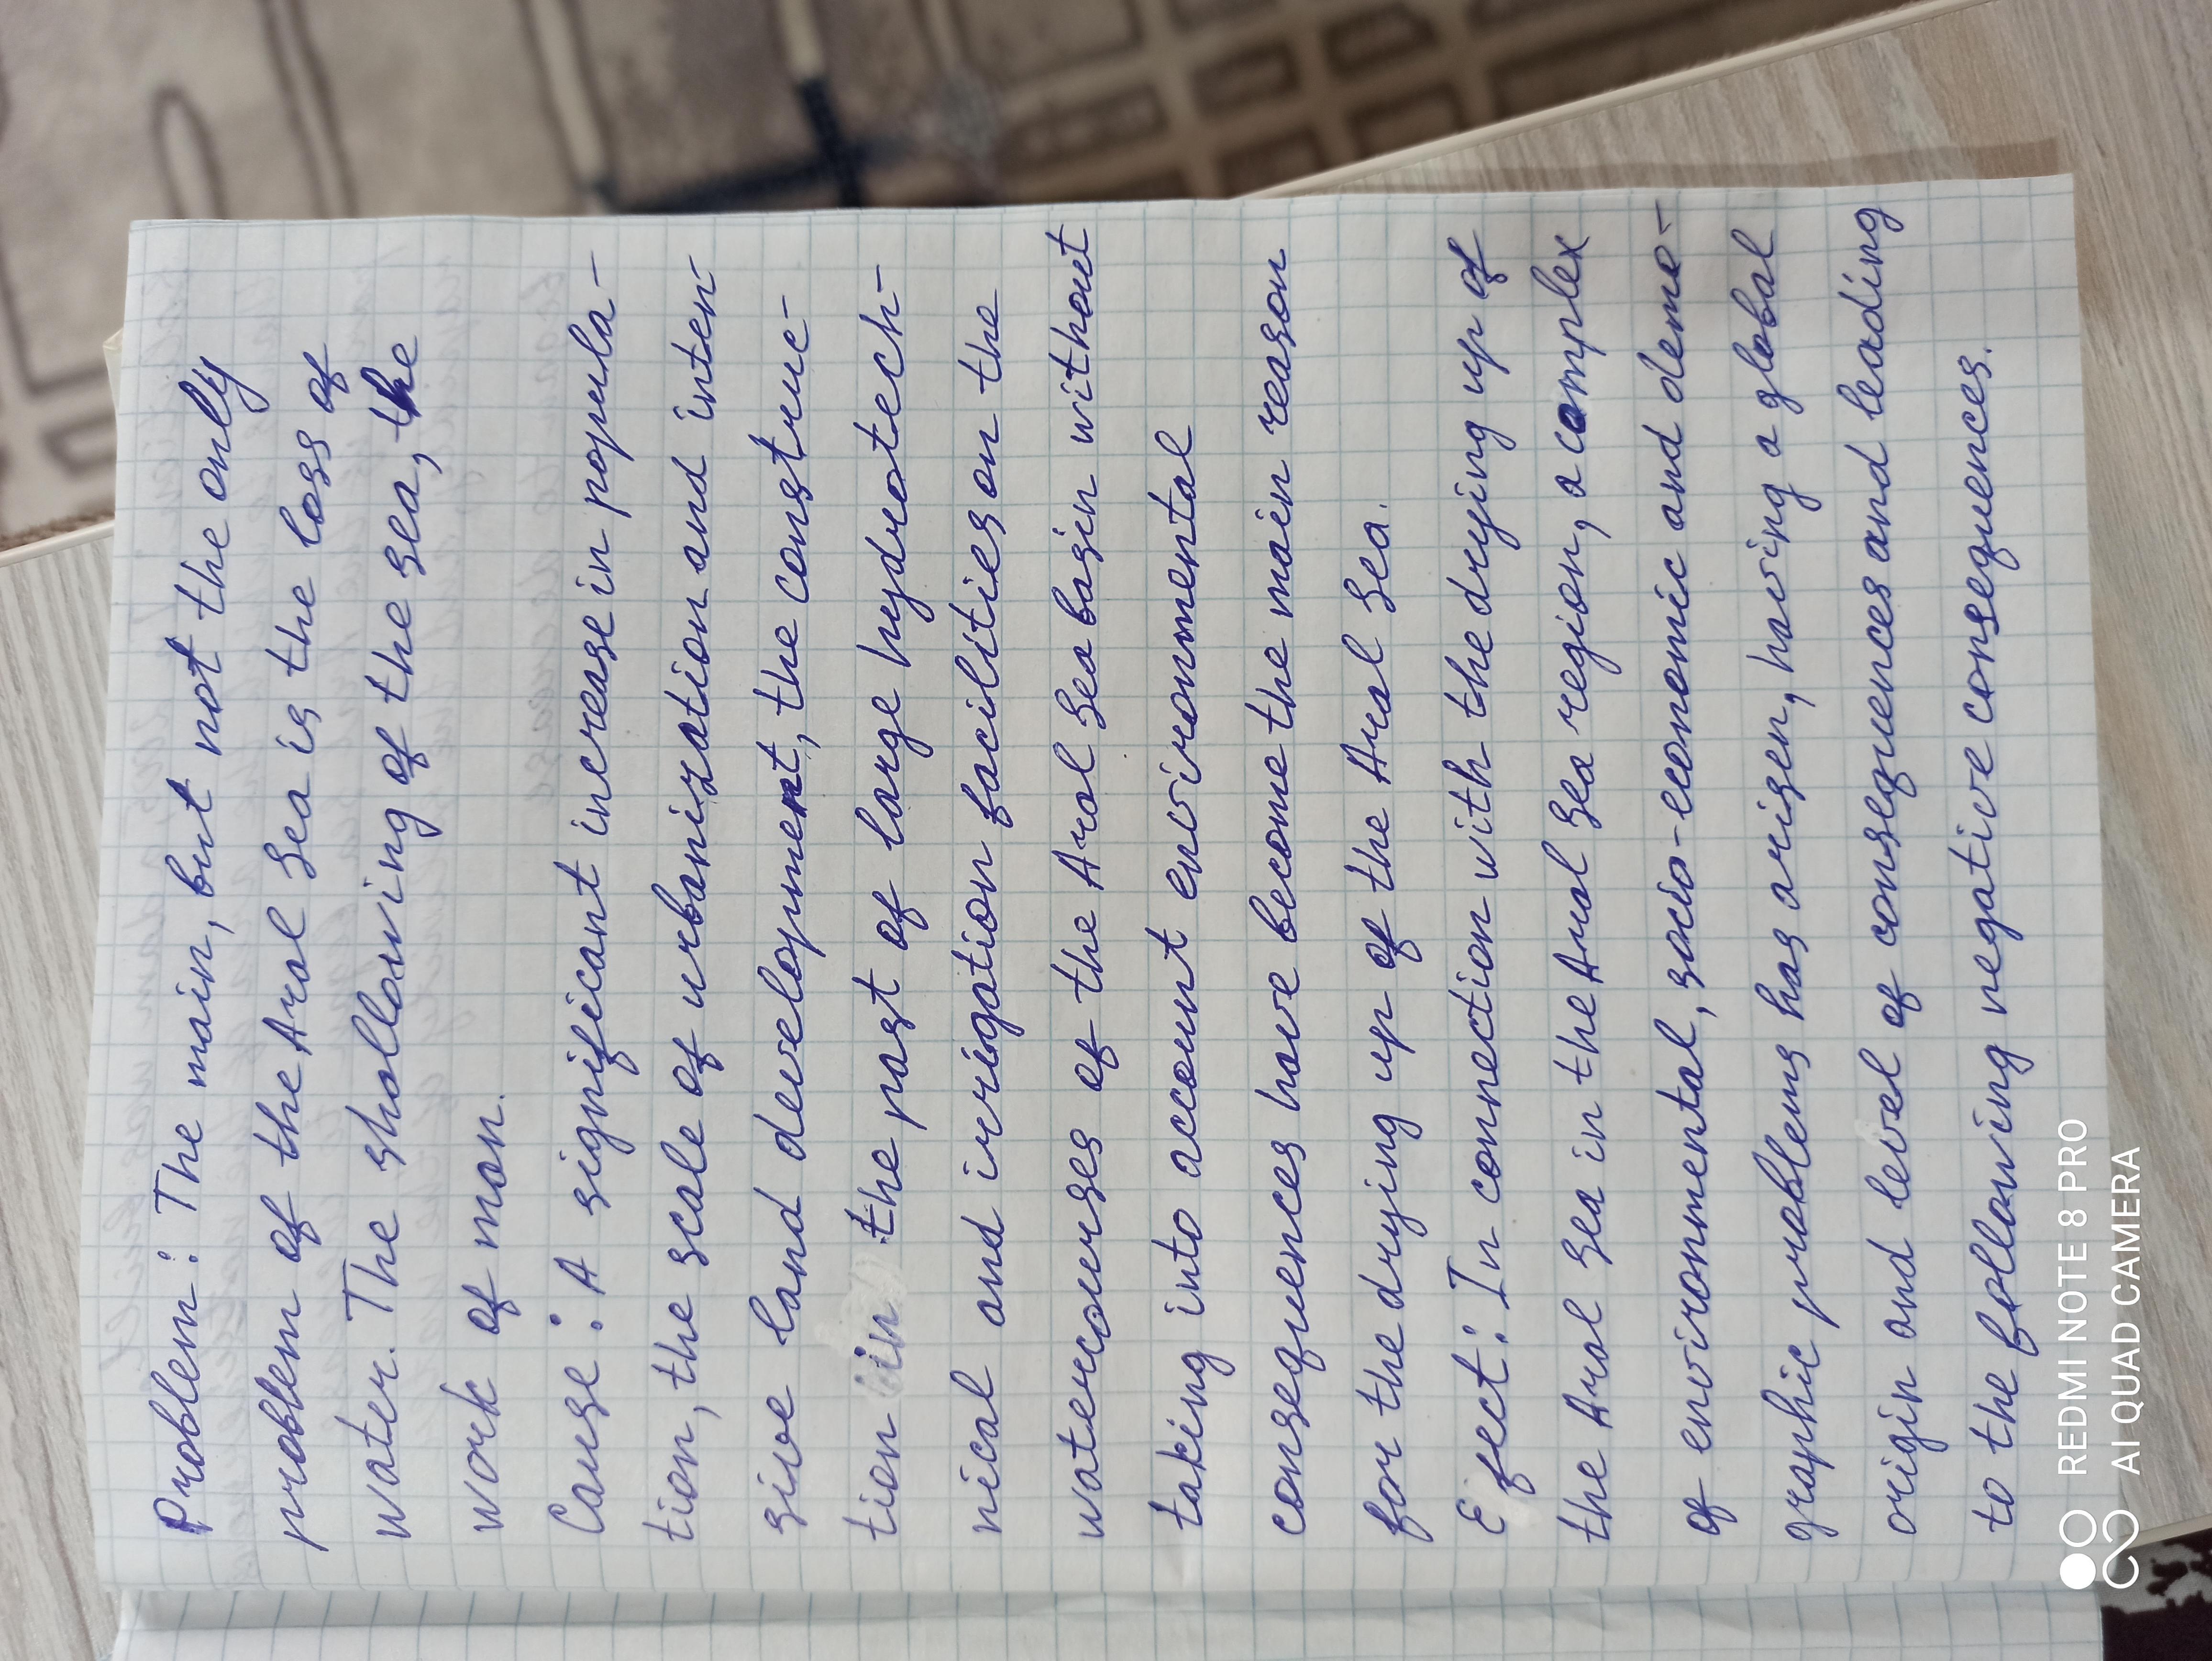 Problem: The main, but not the only
problem of the Aral Sea is the loss of
water. The shallowing of the sea, the
work of man.
Cause: A significant increase in popula-
tion, the scale of urbanization and inten-
sive land development, the construc-
tion in the past of large hydrotech-
nical and irrigation facilities on the
watercourses of the Aral Sea basin without
taking into account environmental
consequences have become the main reason
for the drying up of the Aral Sea.
Effect: In connection with the drying up of
the Aral Sea in the Aral Sea region, a complex
of environmental, socio-economic and demo-
graphic problems has arisen, having a global
origin and level of consequences and leading
to the following negative consequences.
REDMI NOTE 8 PRO
AI QUAD CAMERA